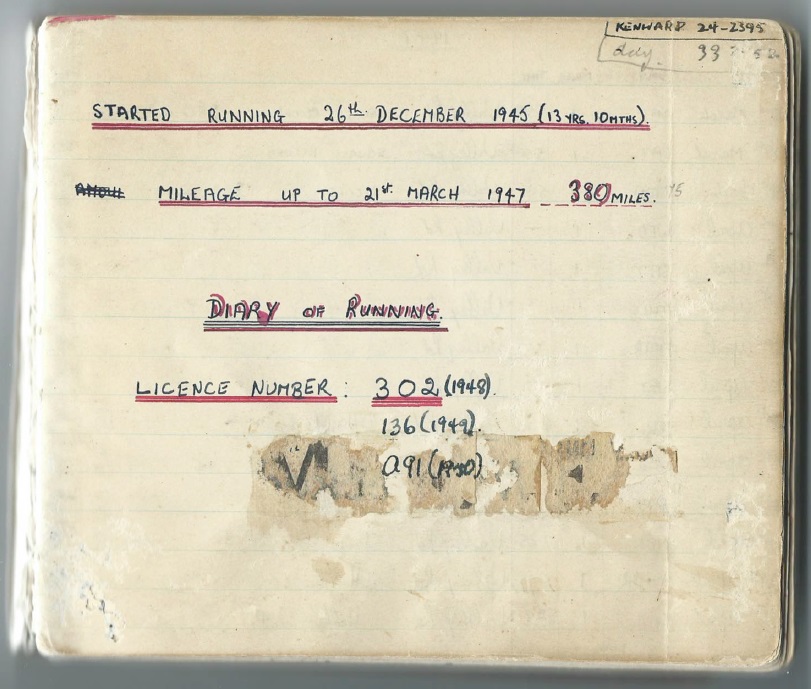 KENWARD 24-2395
STARTED RUNNING 26th DECEMBER 1945 (13 YRS. 10 MTHS).
MILEAGE UP TO 21st MARCH 1947 380 MILES.
DIARY OF RUNNING.
LICENCE NUMBER: 302 (1948).
136 (1949).
A91 (1950)